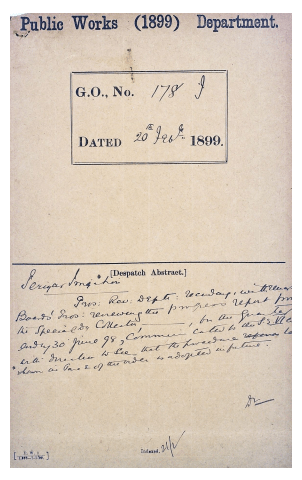 Public Works (1899) Department.
G.O., No. 178 I
DATED 20th Feb 1899.
[Despatch Abstract.]
Periyar Irrigation
Pros: Rev. Dept: recording, with
Board's Pros: reviewing the progress report
the Special Dy Collector, for the Quarter
ending 30 June 98,
with direction to see that the procedure
shown in para 2 of the order is adopted in future.
Indexed.